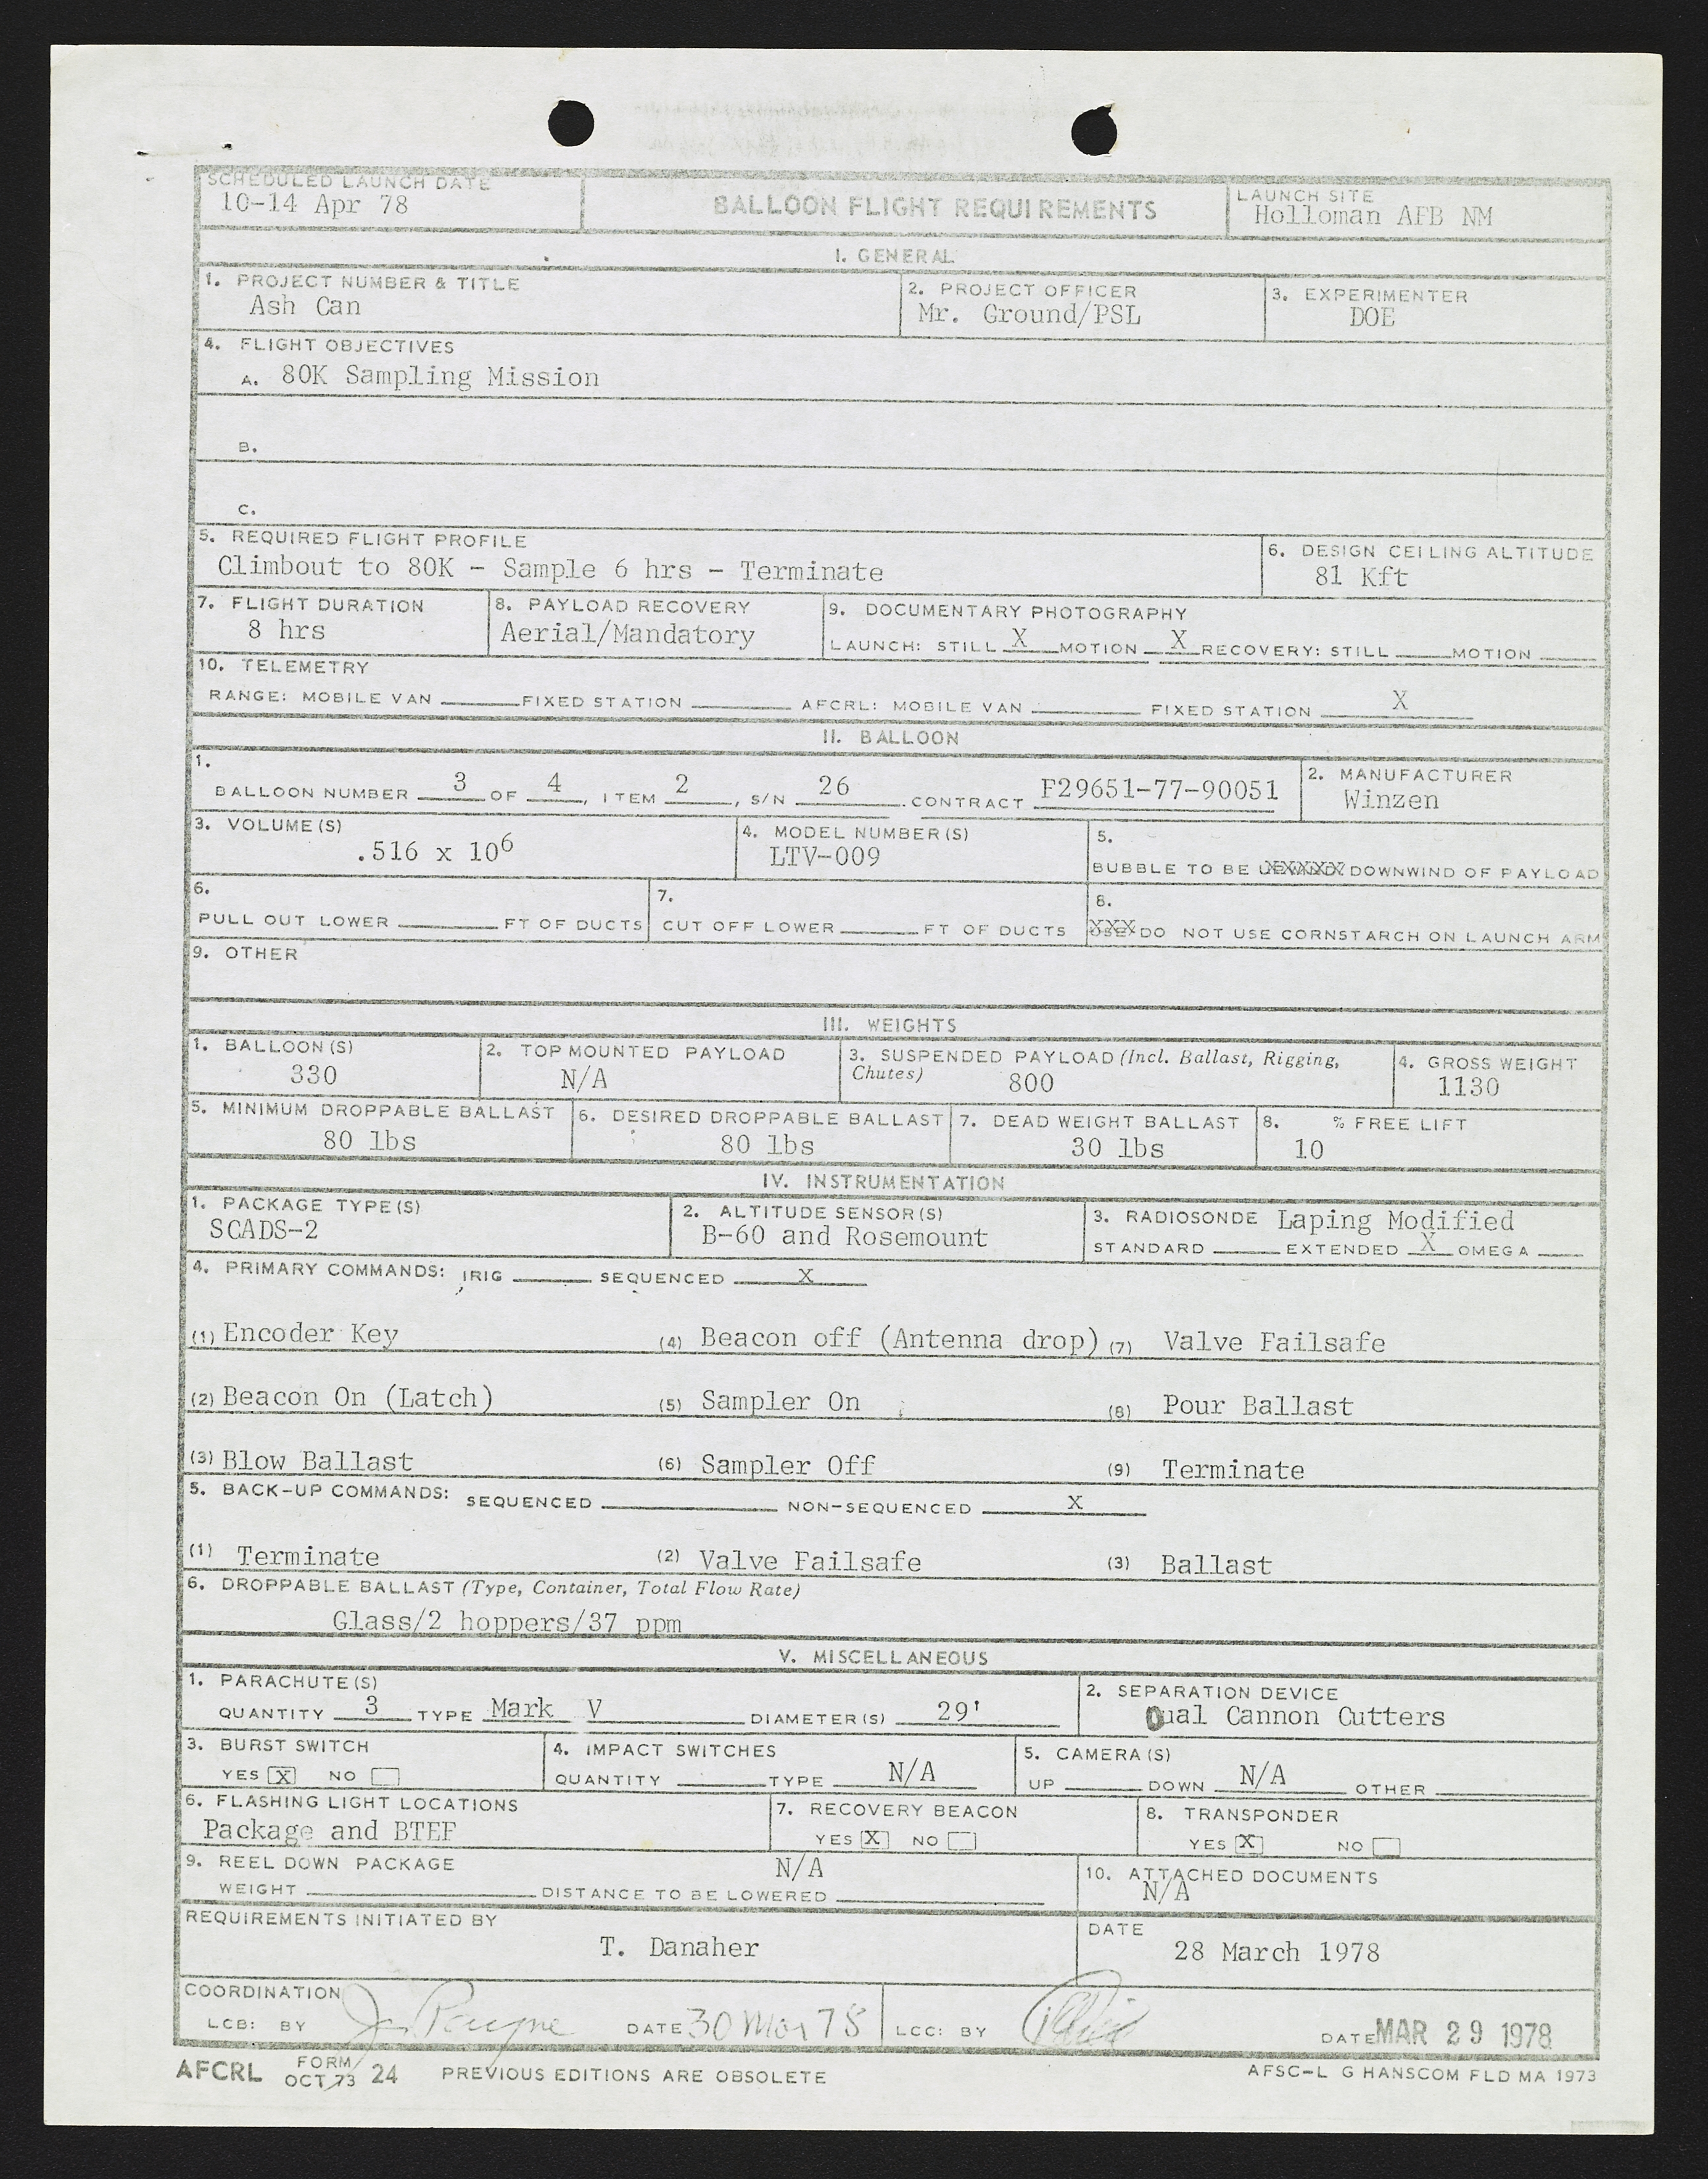 SCHEDULED LAUNCH DATE
10-14 Apr 78
BALLOON FLIGHT REQUIREMENTS
LAUNCH SITE
Holloman AFB NM
I. GENERAL
1. PROJECT NUMBER & TITLE
Ash Can
2. PROJECT OFFICER
Mr. Ground/PSL
3. EXPERIMENTER
DOE
4. FLIGHT OBJECTIVES
A. 80K Sampling Mission
B.
C.
5. REQUIRED FLIGHT PROFILE
Climbout to 80K - Sample 6 hrs - Terminate
6. DESIGN CEILING ALTITUDE
81 Kft
7. FLIGHT DURATION
8 hrs
8. PAYLOAD RECOVERY
Aerial/Mandatory
9. DOCUMENTARY PHOTOGRAPHY
LAUNCH: STILL X MOTION X RECOVERY: STILL MOTION
10. TELEMETRY
RANGE: MOBILE VAN FIXED STATION AFCRL: MOBILE VAN FIXED STATION X
II. BALLOON
1.
BALLOON NUMBER 3 OF 4, ITEM 2, S/N 26. CONTRACT F29651-77-90051
2. MANUFACTURER
Winzen
3. VOLUME(S)
.516 x 10⁶
4. MODEL NUMBER(S)
LTV-009
5.
BUBBLE TO BE DOWNWIND OF PAYLOAD
6.
PULL OUT LOWER FT OF DUCTS
7.
CUT OFF LOWER FT OF DUCTS
8.
DO NOT USE CORNSTARCH ON LAUNCH ARM
9. OTHER
III. WEIGHTS
1. BALLOON(S)
330
2. TOP MOUNTED PAYLOAD
N/A
3. SUSPENDED PAYLOAD (Incl. Ballast, Rigging,
Chutes) 800
4. GROSS WEIGHT
1130
5. MINIMUM DROPPABLE BALLAST
80 lbs
6. DESIRED DROPPABLE BALLAST
80 lbs
7. DEAD WEIGHT BALLAST
30 lbs
8. % FREE LIFT
10
IV. INSTRUMENTATION
1. PACKAGE TYPE(S)
SCADS-2
2. ALTITUDE SENSOR(S)
B-60 and Rosemount
3. RADIOSONDE Laping Modified
STANDARD EXTENDED X OMEGA
4. PRIMARY COMMANDS: IRIG SEQUENCED X
(1) Encoder Key (4) Beacon off (Antenna drop) (7) Valve Failsafe
(2) Beacon On (Latch) (5) Sampler On (8) Pour Ballast
(3) Blow Ballast (6) Sampler Off (9) Terminate
5. BACK-UP COMMANDS: SEQUENCED NON-SEQUENCED X
(1) Terminate (2) Valve Failsafe (3) Ballast
6. DROPPABLE BALLAST (Type, Container, Total Flow Rate)
Glass/2 hoppers/37 ppm
V. MISCELLANEOUS
1. PARACHUTE(S)
QUANTITY 3 TYPE Mark V DIAMETER(S) 29'
2. SEPARATION DEVICE
Dual Cannon Cutters
3. BURST SWITCH
YES X NO
4. IMPACT SWITCHES
QUANTITY TYPE N/A
5. CAMERA(S)
UP DOWN N/A OTHER
6. FLASHING LIGHT LOCATIONS
Package and BTEF
7. RECOVERY BEACON
YES X NO
8. TRANSPONDER
YES X NO
9. REEL DOWN PACKAGE N/A
WEIGHT DISTANCE TO BE LOWERED
10. ATTACHED DOCUMENTS
N/A
REQUIREMENTS INITIATED BY
T. Danaher
DATE
28 March 1978
COORDINATION
LCB: BY Payne DATE 30 Mar 78
LCC: BY DATE MAR 29 1978
AFCRL FORM OCT 73 24 PREVIOUS EDITIONS ARE OBSOLETE
AFSC-L G HANSCOM FLD MA 1973